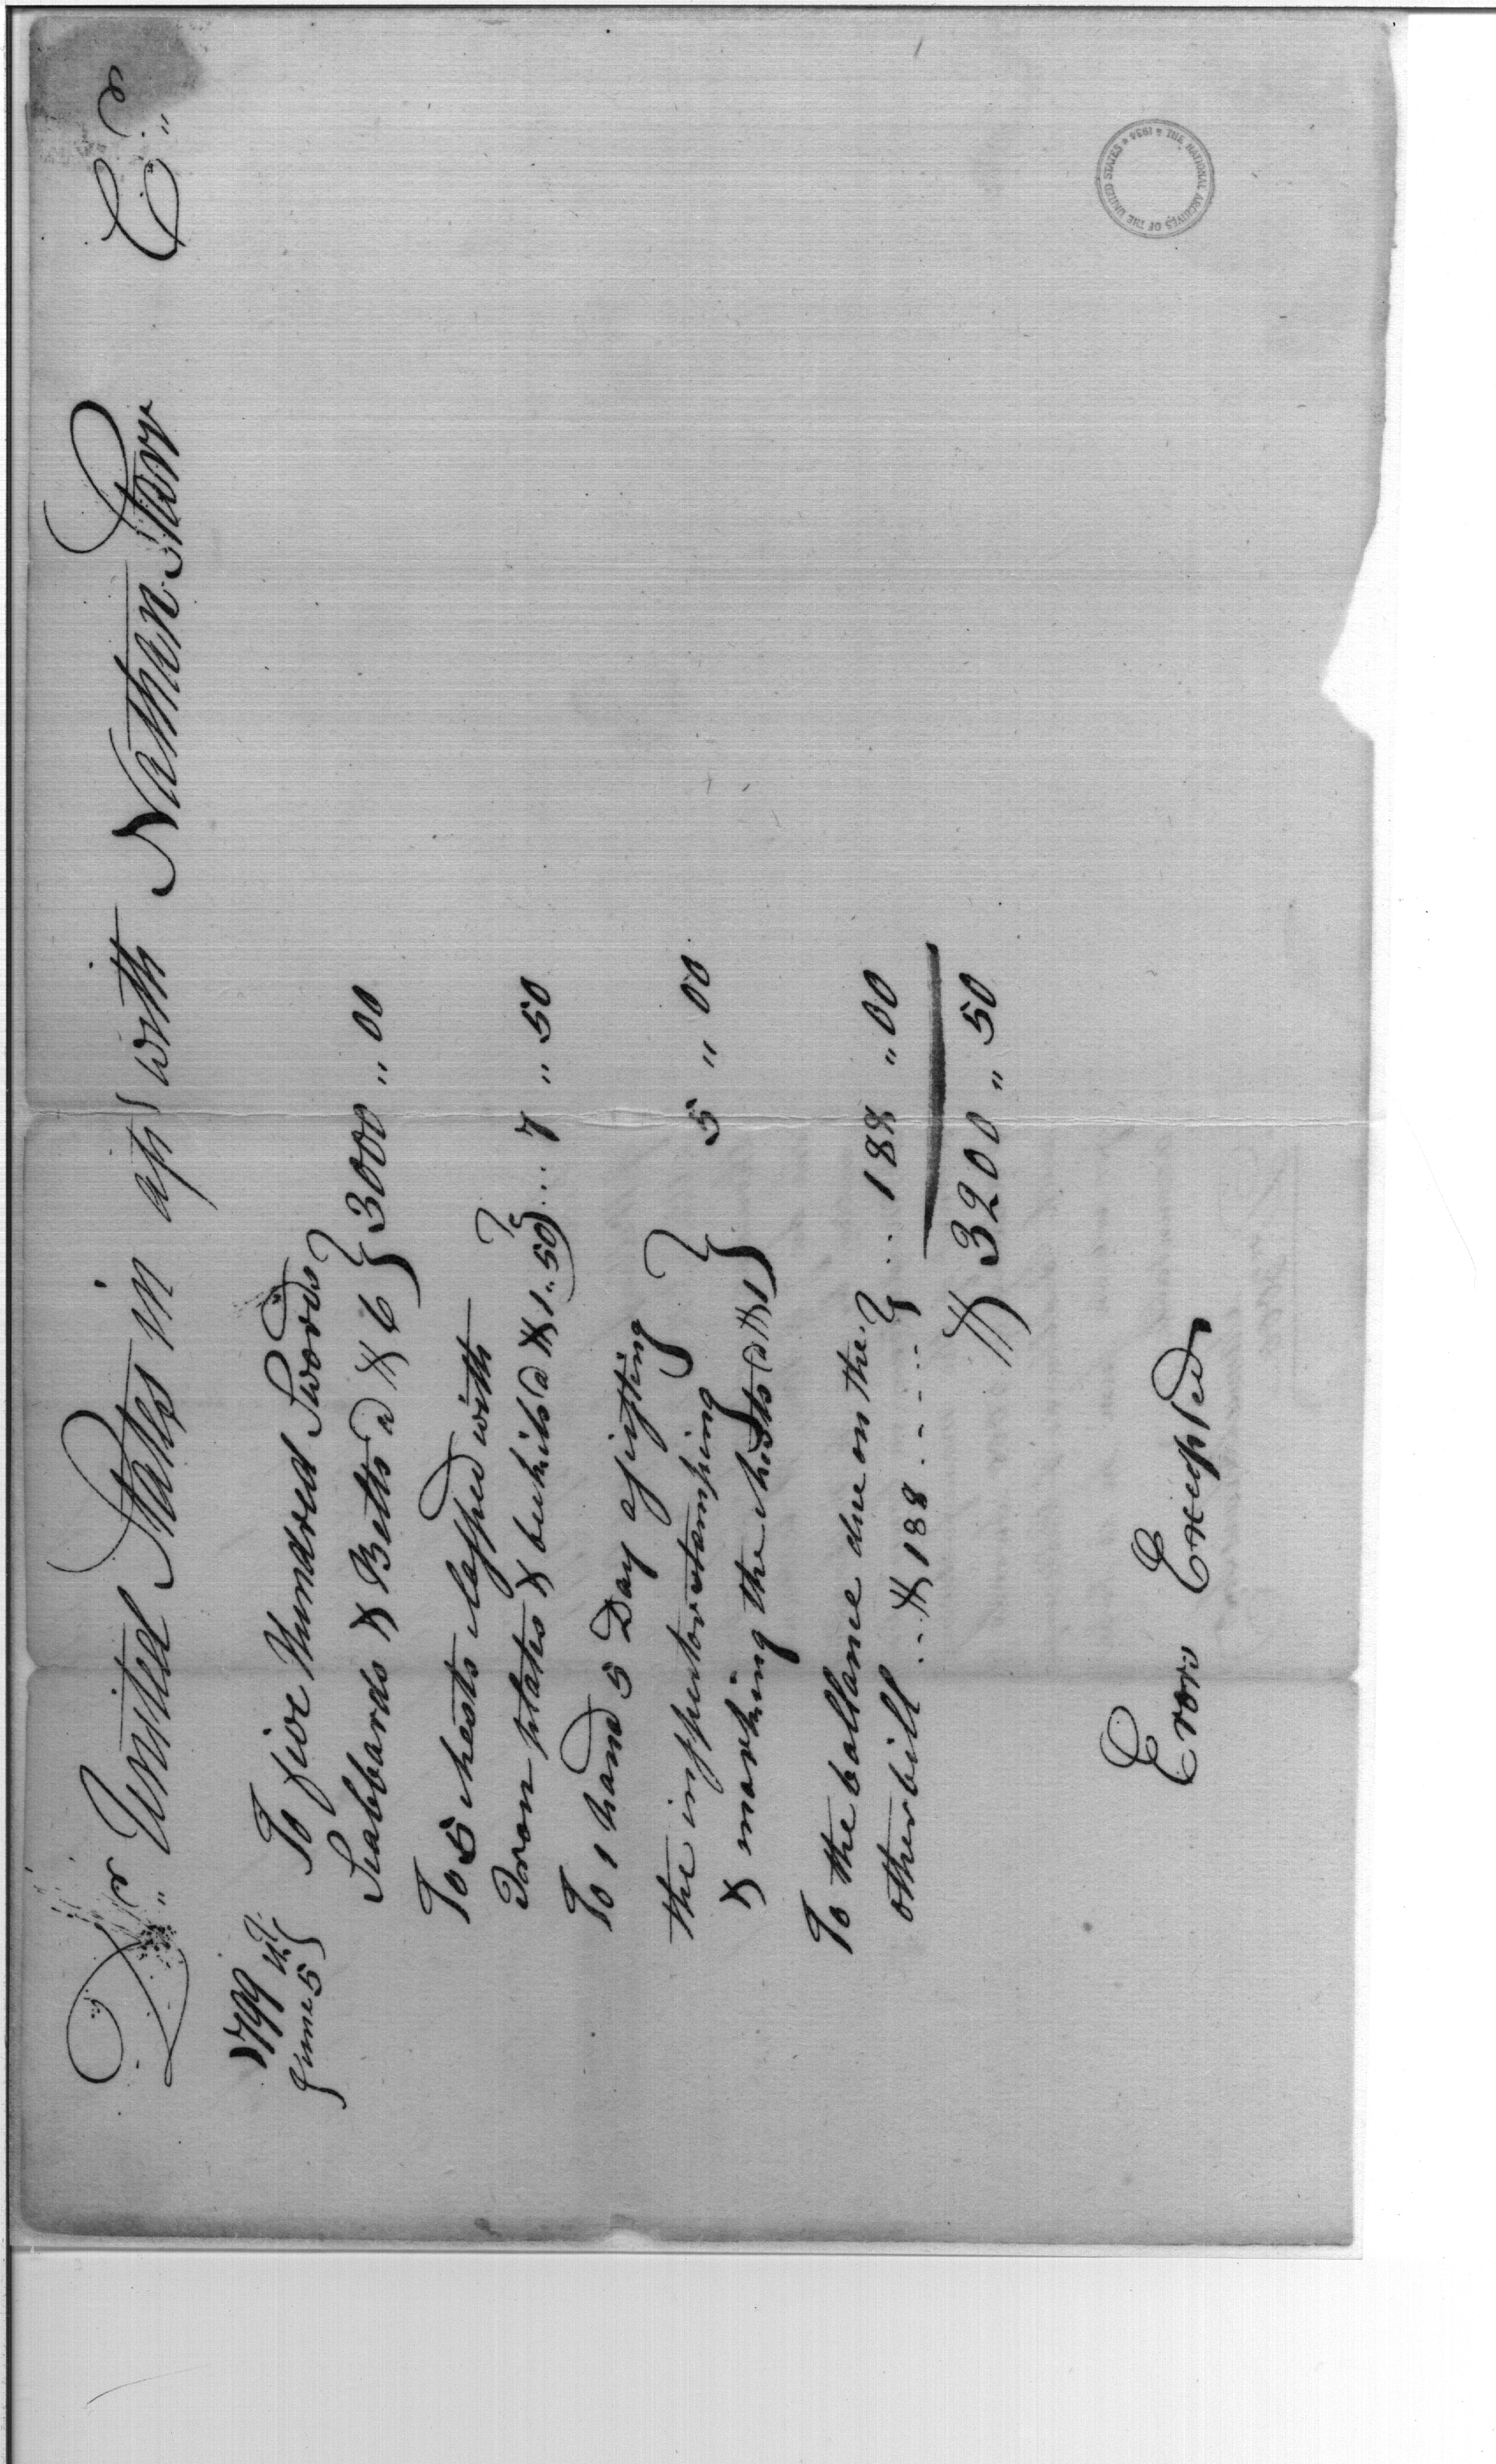 Dr. United States in apt with Nathan Starr Cr.
1799
June 5th
To five Hundred Swords
Scabbards & Belts a $6 } 3000 ,, 00
To 5 chests clapped with
Iron plates & beckits a $1.. 50 } ... 7 ,, 50
To 1 hand 5 Day
the inspector stamping
& marking the chests a $1 } 5 ,, 00
To the ballance due on the
other bill .. $188 ..... } ... 188 ,, 00
$ 3200 ,, 50
Erors Excepted
THE NATIONAL ARCHIVES OF THE UNITED STATES * 1934 *